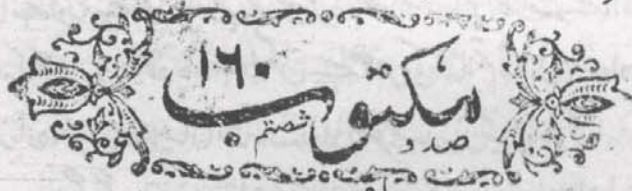 مکتوب ۱۶۰
صد و شصتم